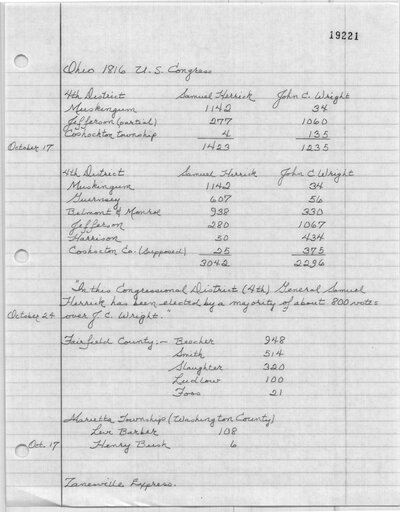 19221
Ohio 1816 U.S. Congress
4th District Samuel Herrick John C. Wright
Muskingum 1142 34
Jefferson (partial) 277 1060
Coshockton township 4 135
October 17 1423 1235
4th District Samuel Herrick John C. Wright
Muskingum 1142 34
Guernsey 607 56
Belmont & Monroe 938 330
Jefferson 280 1067
Harrison 50 434
Coshocton Co. (supposed) 25 375
3042 2296
"In this Congressional District (4th) General Samuel
Herrick has been elected by a majority of about 800 votes
October 24 over J. C. Wright."
Fairfield County:- Beecher 948
Smith 514
Slaughter 320
Ludlow 100
Foos 21
Marietta Township (Washington County)
Levi Barber 108
Oct. 17 Henry Bush 6
Zanesville Express.